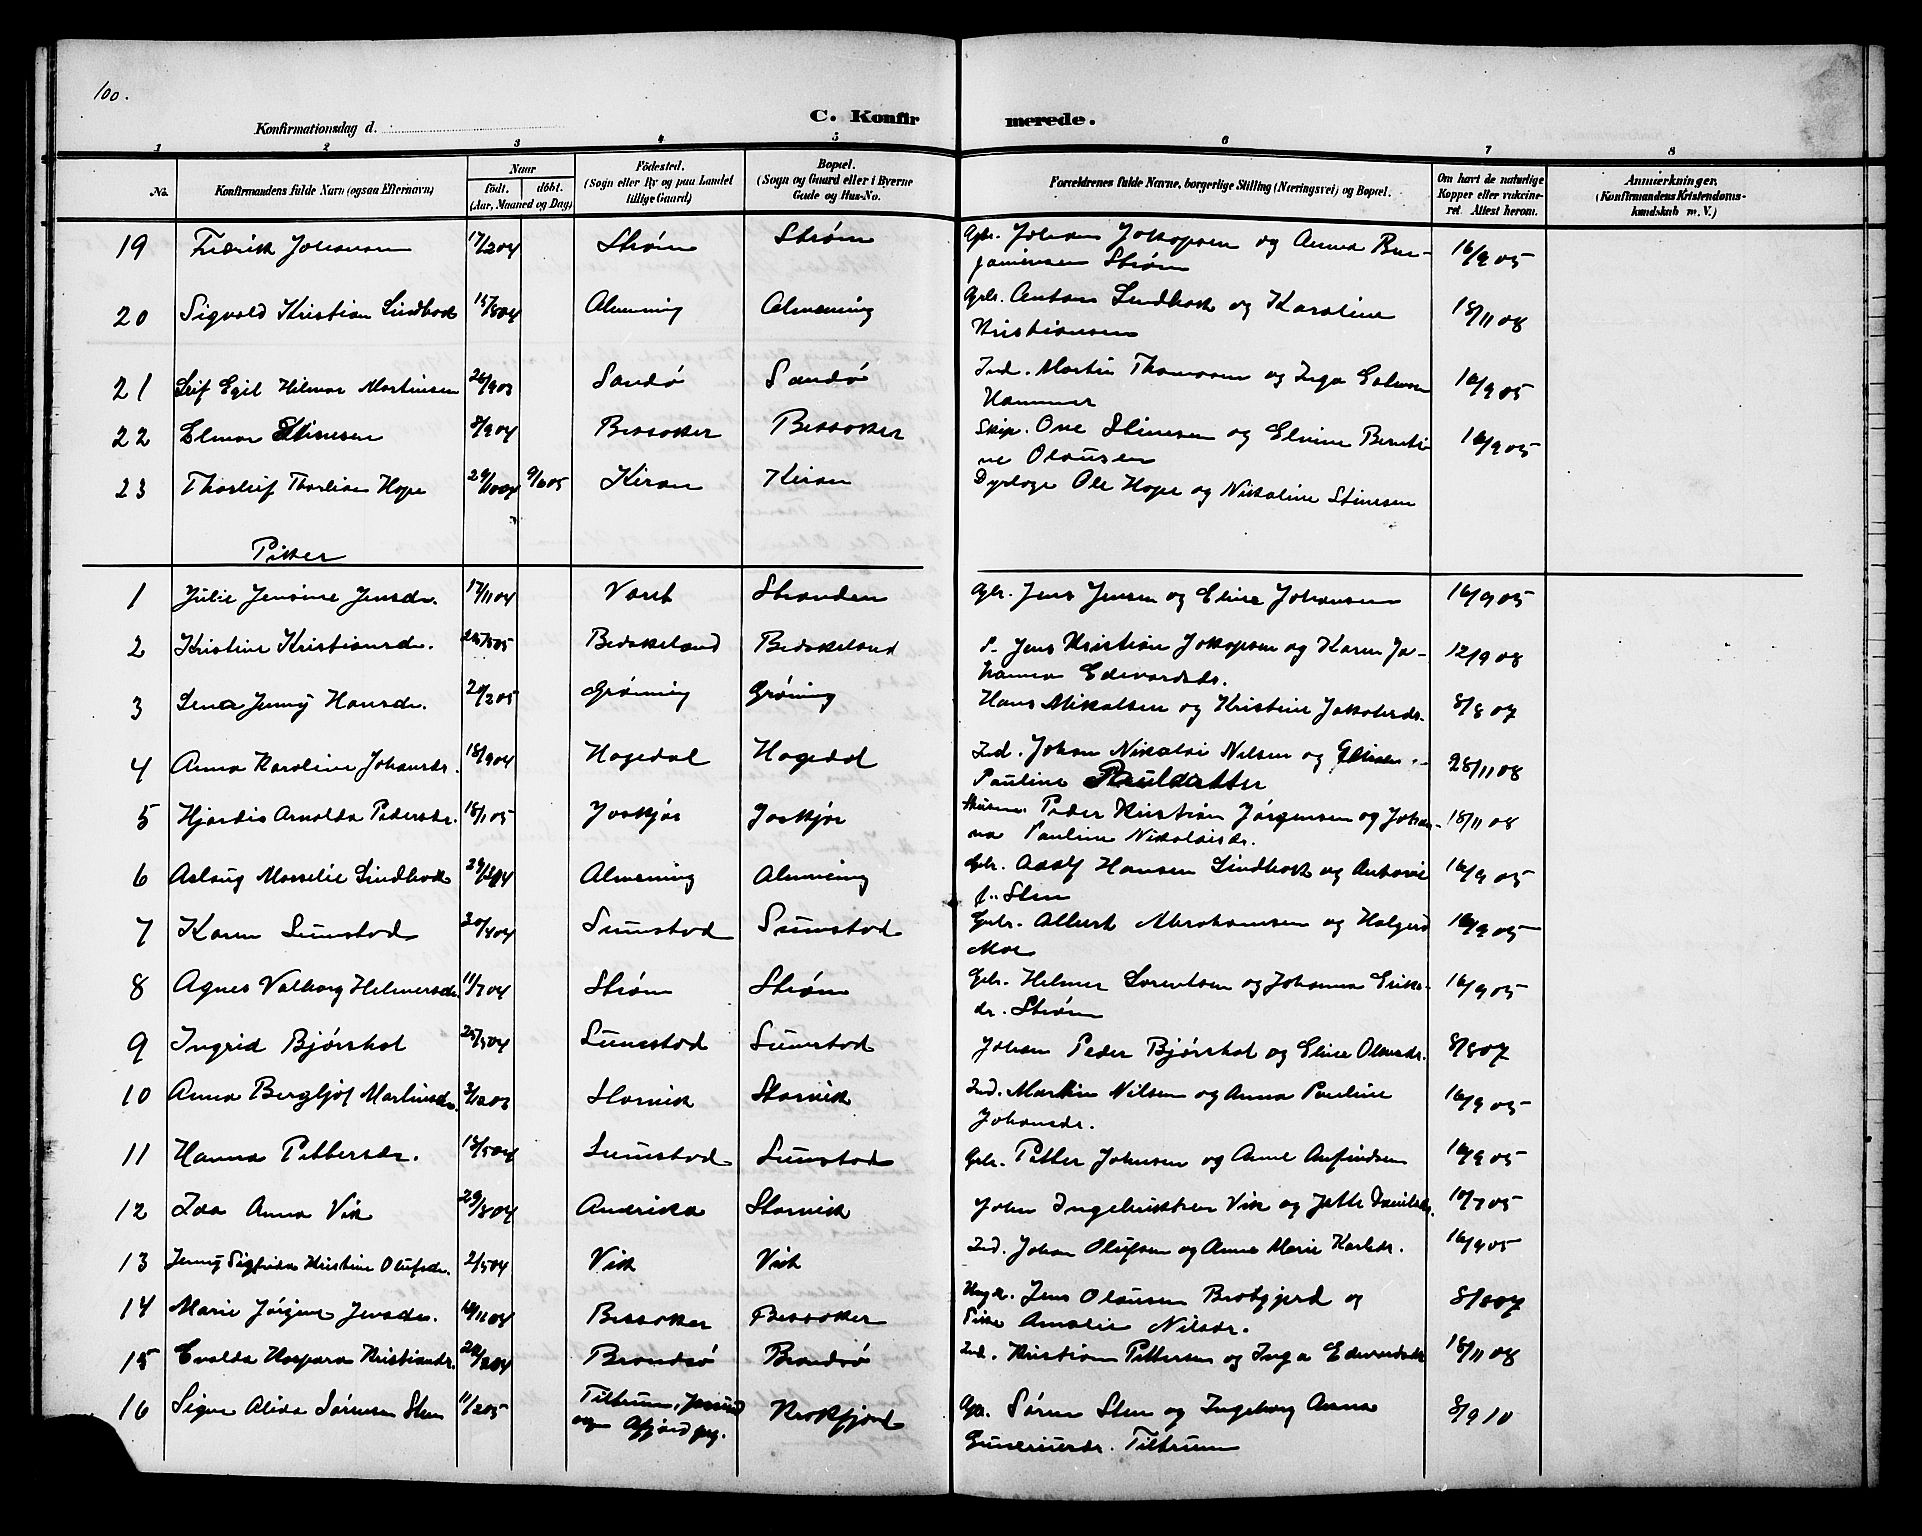 100.
C. Konfirmerede.
Konfirmationsdag d.
1 2 3 4 5 6 7 8
No. Konfirmandens fulde Navn (ogsaa Efternavn)
Naar født. døbt. (Aar, Maaned og Dag)
Fødested. (Sogn eller By og paa Landet tillige Gaard)
Bopæl. (Sogn og Gaard eller i Byerne Gade og Hus-No.
Forældrenes fulde Navne, borgerlige Stilling (Næringsvei) og Bopæl.
Om havt de naturlige Kopper eller vakcineret. Attest herom.
Anmærkninger, (Konfirmandens Kristendomskundskab m. V.)
19 Fredrik Johansen 17/2 04 Strøm Strøm Gbr. Johan Jakopsen og Anna Benjaminsen Strøm 16/9 05
20 Sigvald Kristian Lindbak 15/8 04 Almening Almening Gbr. Anton Lindbak og Karoline Kristiansen 18/11 08
21 Leif Egil Hilmar Martinsen 26/9 03 Sandø Sandø Ind. Martin Thomasen og Inga Hammer 16/9 05
22 Elmar Stinesen 8/9 04 Bessaker Bessaker Skip. Ove Stinesen og Elvine Berntine Olausen 16/9 05
23 Thorleif Thorlian Hope 29/10 04 9/6 05 Kiran Kiran Dyrlæge Ole Hope og Nikoline Stinesen
Piker
1 Julie Jensine Jensdr. 17/11 04 Varet Stranden Gbr. Jens Jensen og Eline Johansen 16/9 05
2 Kristine Kristiansdr. 25/5 05 Beskeland Beskeland S. Jens Kristian Jakopsen og Karen Johanna Edevardsdr. 12/9 08
3 Lena Jenny Hansdr. 20/2 05 Grøning Grøning Hans Mikalsen og Kristine Jakobsdr. 8/8 07
4 Anna Karoline Johansdr. 18/9 04 Hagedal Hagedal Ind. Johan Nikolai Nilsen og Pauline Pauldatter 28/11 08
5 Hjørdis Arnolda Pedersdr. 18/1 05 Joskjør Joskjør Peder Kristian Jørgensen og Johanna Pauline Nikolaisdr. 18/11 08
6 Aslaug Marselie Lindbak 29/12 04 Almening Almening Gbr. Adolf Hansen Lindbak og Antonie f. Sten 16/9 05
7 Karen Sumstad 30/4 04 Sumstad Sumstad Gbr. Albert Abrahamsen og Halgerd Moe 16/9 05
8 Agnes Valborg Helmersdr. 11/7 04 Strøm Strøm Gbr. Helmer Lorentsen og Johanna Eriksdr. Strøm 16/9 05
9 Ingrid Bjørshol 25/5 04 Sumstad Sumstad Johan Peder Bjørshol og Eline Olausdr. 8/8 07
10 Anna Bergljot Martinsdr. 3/12 03 Storvik Storvik Ind. Martin Nilsen og Anna Pauline Johansdr. 16/9 05
11 Hanna Pettersdr. 13/5 04 Sumstad Sumstad Gbr. Petter Johnsen og Anne Anfindsen 16/9 05
12 Ida Anna Vik 29/8 04 Amerika Storvik John Ingebriktsen Vik og Jette Danielsdr. 10/7 05
13 Jenny Sigfrida Kristine Olufsdr. 2/5 04 Vik Vik Ind. Johan Olufsen og Anne Marie Karlsdr. 16/9 05
14 Marie Jørgine Jensdr. 18/11 04 Bessaker Bessaker Ungk. Jens Olausen Brobygjerd og Pike Amalie Nilsdr. 8/8 07
15 Evalda Kaspara Kristiansdr. 22/2 04 Brandsø Brandsø Ind. Kristian Pettersen og Inga Edevardsdr. 18/11 08
16 Signe Alida Sørensen Sten 11/2 05 Tiltrum, Jøssund sogn Afjord pg. Krokfjord Gbr. Søren Sten og Ingeborg Anna Gunneriusdr. Tiltrum 8/9 10